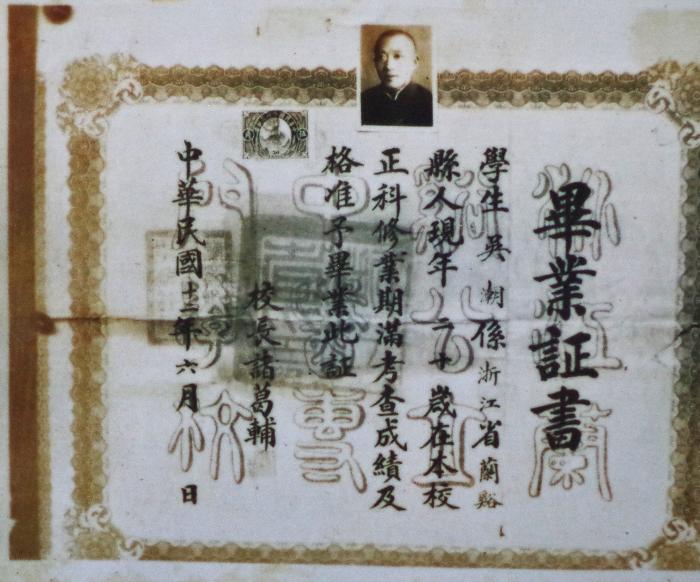 畢業証書
學生吳潮係浙江省蘭谿
縣人現年二十歲在本校
正科修業期滿考查成績及
格准予畢業此証
校長諸葛輔
中華民國十二年六月 日